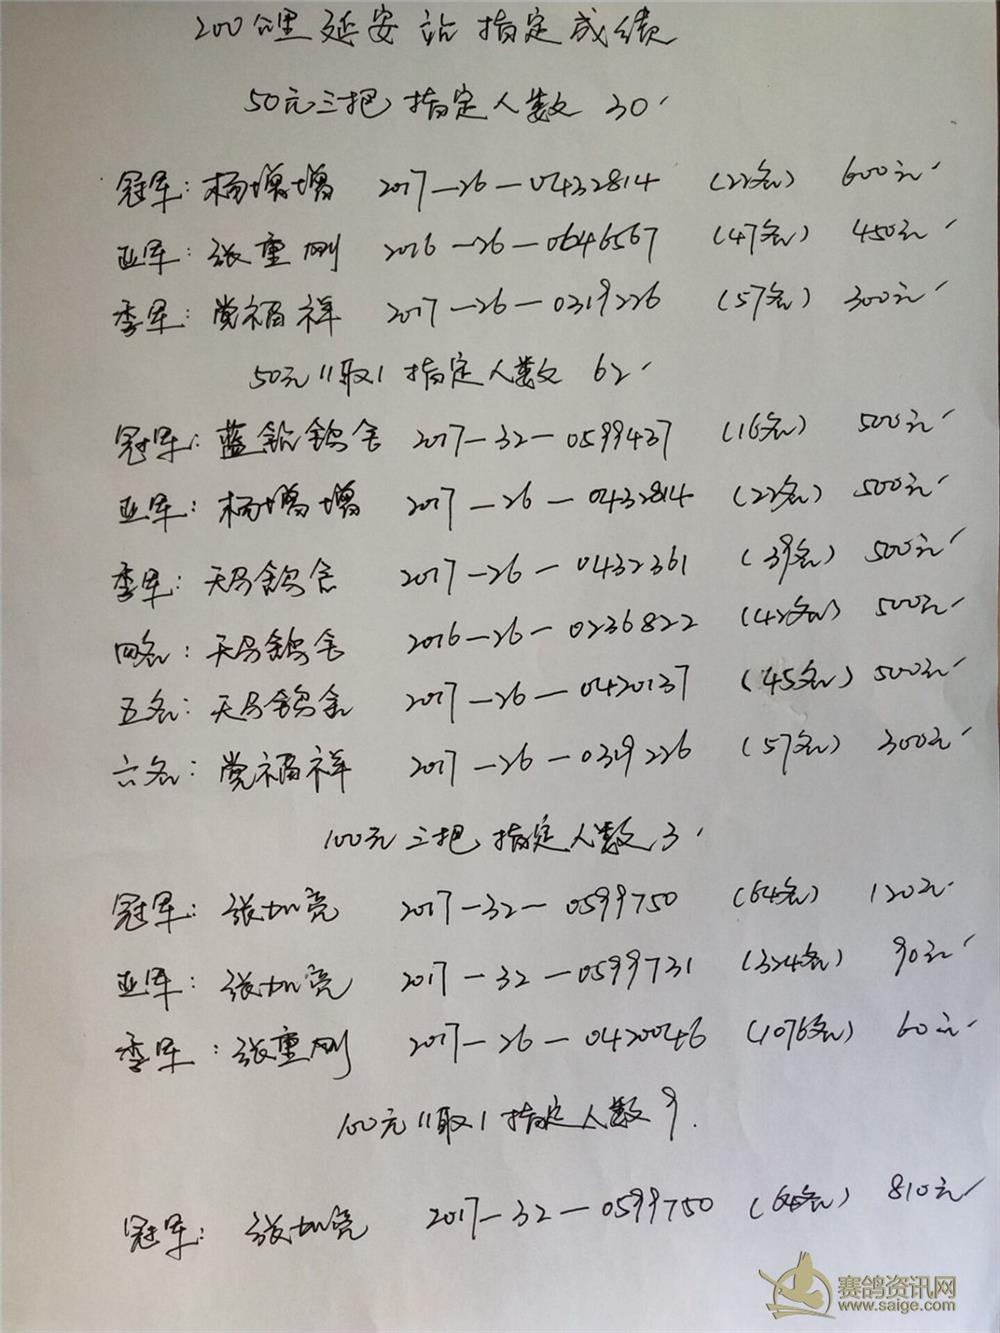 200公里延安站指定成绩
50元三把指定人数 30
冠军：杨增增 2017—26—0432814 (22名) 600元
亚军：张重刚 2016—26—0646567 (47名) 450元
季军：党福祥 2017—26—0319226 (57名) 300元
50元11取1指定人数 62
冠军：蓝 鸽舍 2017—32—0599437 (16名) 500元
亚军：杨增增 2017—26—0432814 (22名) 500元
季军：天马鸽舍 2017—26—0432361 (39名) 500元
四名：天马鸽舍 2016—26—0236822 (42名) 500元
五名：天马鸽舍 2017—26—0420137 (45名) 500元
六名：党福祥 2017—26—0319226 (57名) 300元
100元三把指定人数 3
冠军：张加亮 2017—32—0599750 (64名) 120元
亚军：张加亮 2017—32—0599731 (324名) 90元
季军：张重刚 2017—26—0420046 (1076名) 60元
100元11取1指定人数 9.
冠军：张加亮 2017—32—0599750 (名) 810元
赛鸽资讯网
www.saige.com